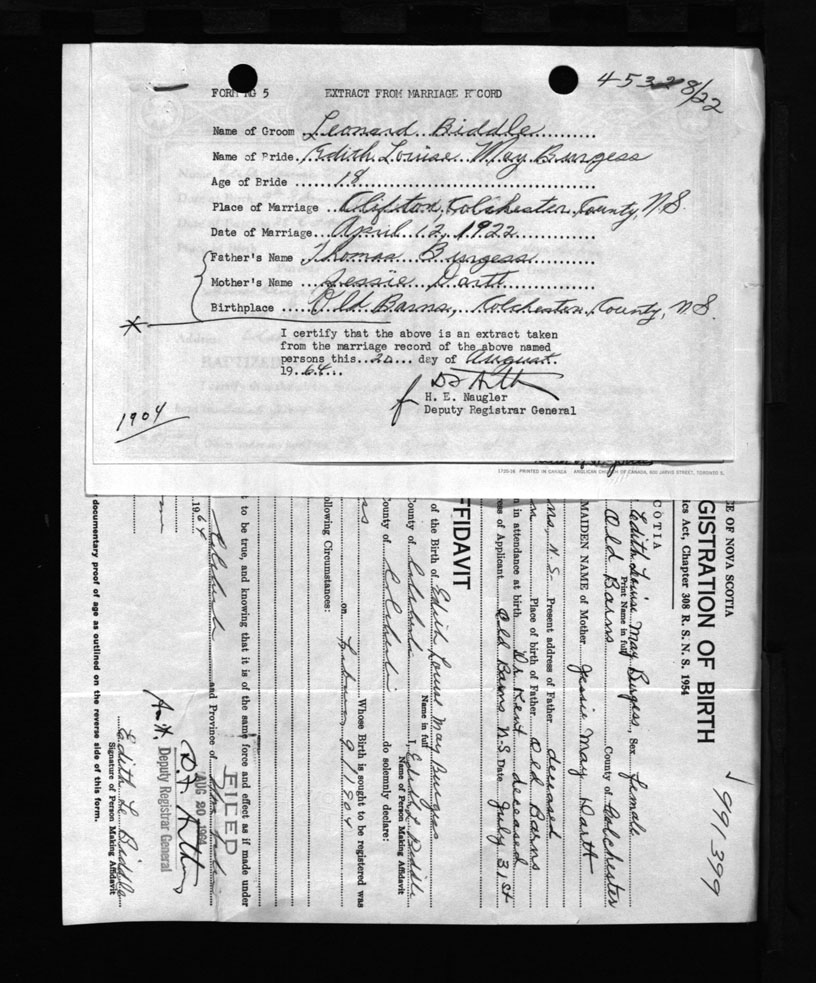 4532 8/22
FORM RG 5 EXTRACT FROM MARRIAGE RECORD
Name of Groom Leonard Biddle
Name of Bride Edith Louise May Burgess
Age of Bride 18
Place of Marriage Clifton, Colchester County, N.S.
Date of Marriage April 12, 1922
Father's Name Thomas Burgess
Mother's Name Jessie Darth
Birthplace Old Barns, Colchester County, N.S.
I certify that the above is an extract taken
from the marriage record of the above named
persons this 20 day of August
19 64
H. E. Naugler
Deputy Registrar General
1904
1735-16 PRINTED IN CANADA ANGLICAN CHURCH OF CANADA, 600 JARVIS STREET, TORONTO 5,
991399
CE OF NOVA SCOTIA
GISTRATION OF BIRTH
ics Act, Chapter 308 R. S. N. S. 1954
COTIA
Edith Louise May Burgess, Sex female
Print Name in full
Old Barns County of Colchester
MAIDEN NAME of Mother Jessie May Darth
ns, N.S. Present address of Father deceased
Place of birth of Father Old Barns
n in attendance at birth Dr Kent deceased
ess of Applicant Old Barns N.S Date July 31st
FFIDAVIT
of the Birth of Edith Louise May Burgess
Name in full
County of Colchester I, Edith L Biddle
Name of Person Making Affidavit
County of Colchester do solemnly declare:
Whose Birth is sought to be registered was
on 9, 1904
ollowing Circumstances:
t to be true, and knowing that it is of the same force and effect as if made under
Colchester and Province of Nova Scotia
1964
FILED
AUG 20 1964
Deputy Registrar General
Edith L Biddle
Signature of Person Making Affidavit
documentary proof of age as outlined on the reverse side of this form.